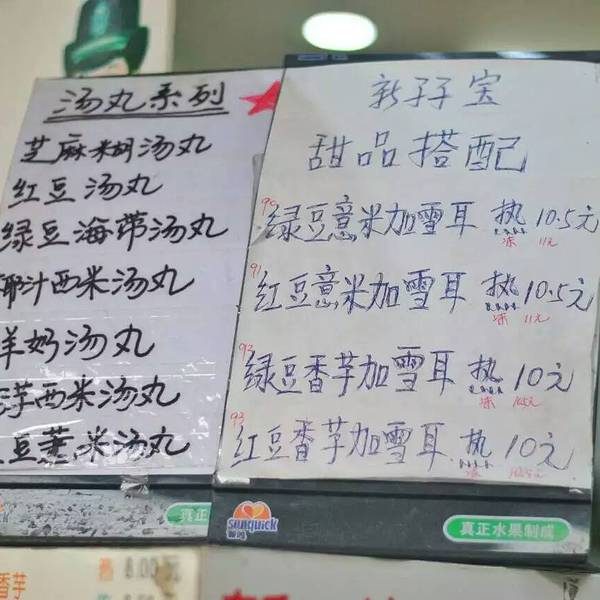 汤丸系列
芝麻糊汤丸
红豆汤丸
绿豆海带汤丸
椰汁西米汤丸
羊奶汤丸
芋西米汤丸
豆薏米汤丸
新孖宝
甜品搭配
90 绿豆薏米加雪耳 热 10.5元
冻 11元
91 红豆薏米加雪耳 热 10.5元
冻 11元
92 绿豆香芋加雪耳 热 10元
冻 10.5元
93 红豆香芋加雪耳 热 10元
冻 10.5元
真正
sunquick
新的
真正水果制成
香芋 热 8.00元